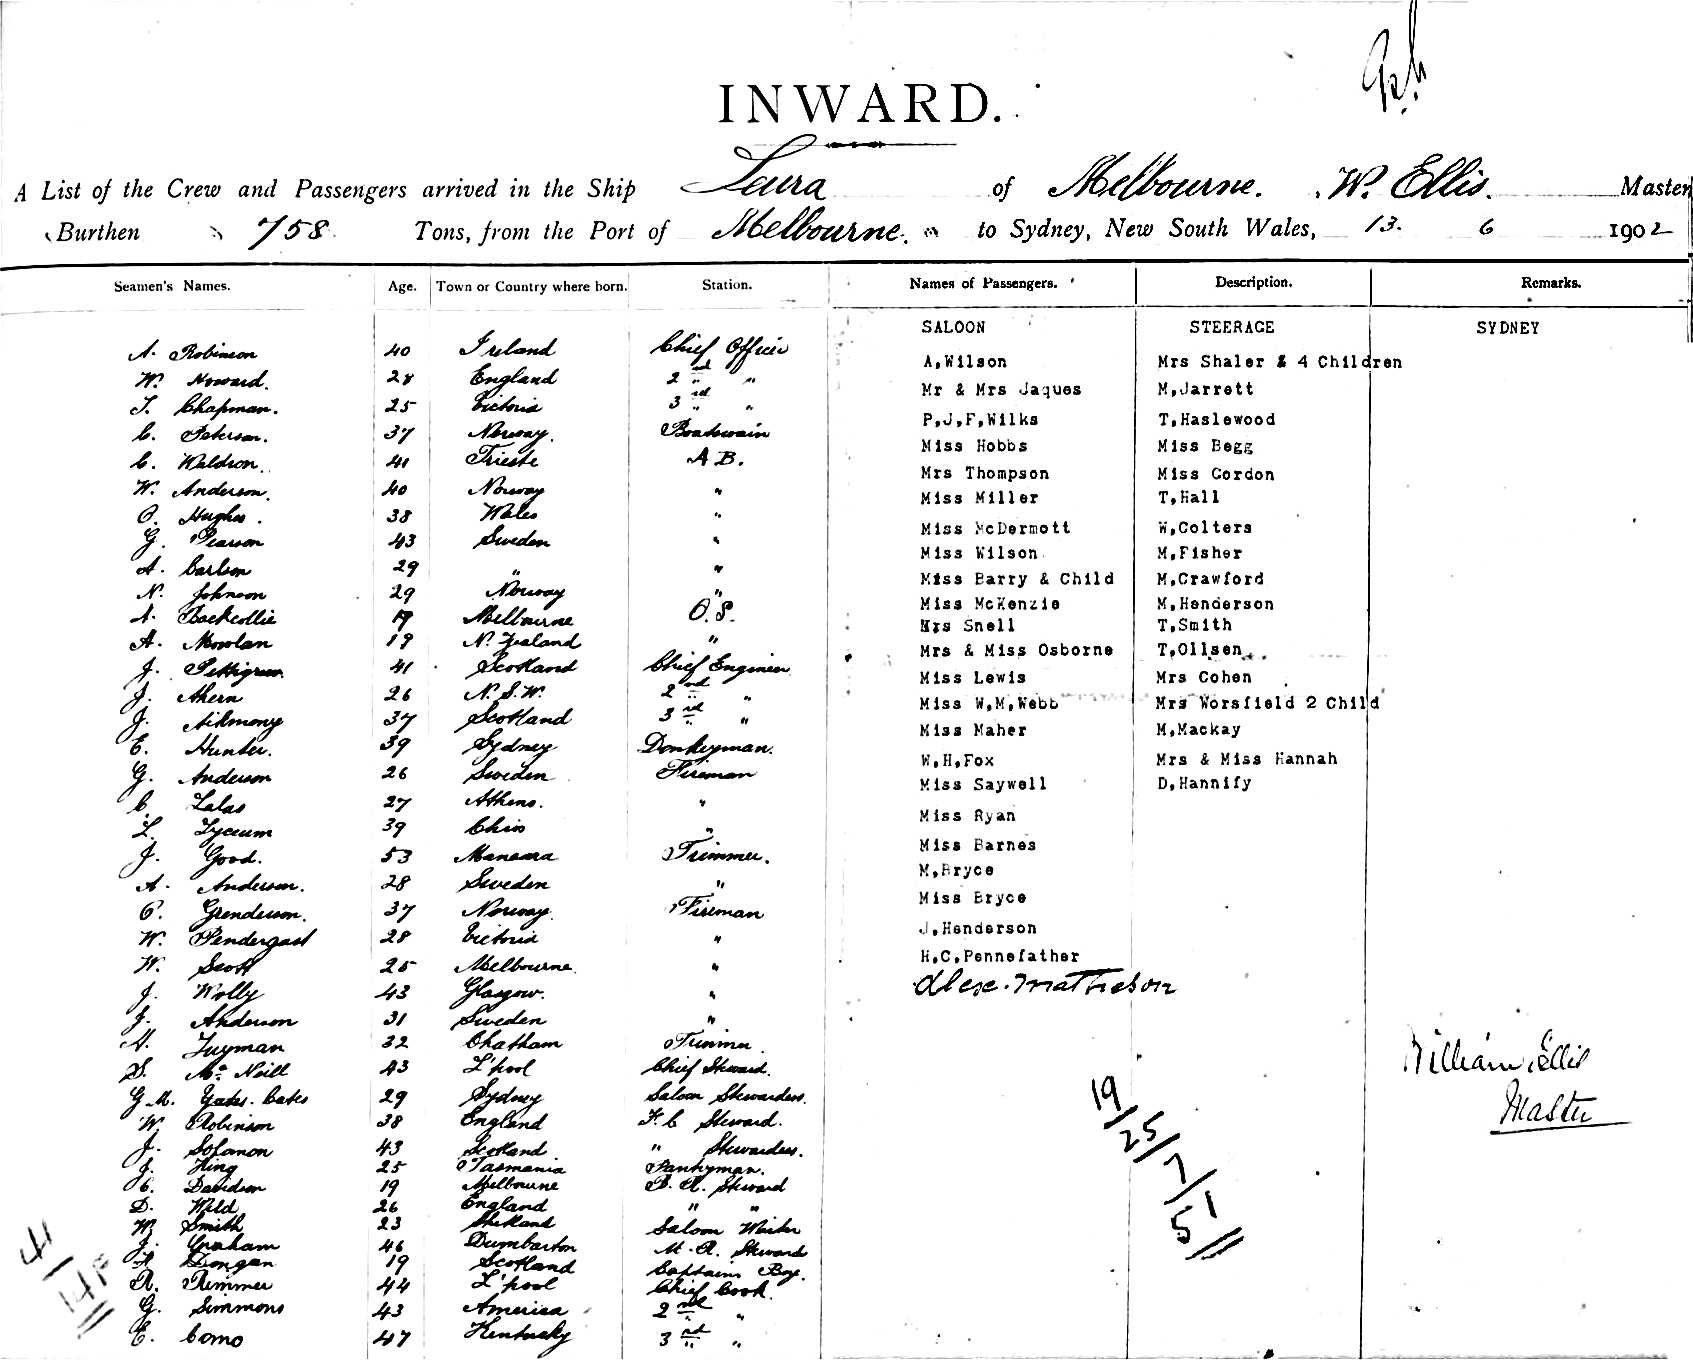 INWARD.
A List of the Crew and Passengers arrived in the Ship Leura of Melbourne. W. Ellis. Master
Burthen 758 Tons, from the Port of Melbourne. to Sydney, New South Wales, 13. 6 1902
Seamen's Names. Age. Town or Country where born. Station. Names of Passengers. Description. Remarks.
SALOON STEERAGE SYDNEY
A. Robinson 40 Ireland Chief Officer
W. Howard. 28 England 2nd "
T. Chapman. 25 Victoria 3rd " "
C. Paterson. 37 Norway. Boatswain
C. Waldron. 41 Trieste A B.
W. Anderson. 40 Norway "
O. Hughes. 38 Wales "
G. Pearson 43 Sweden "
A. Carlson 29 " "
N. Johnson 29 Norway "
A. 19 Melbourne O.S.
A. Nowlan 19 N. Zealand "
J. Pettigrew 41 Scotland Chief Engineer
J. Ahern 26 N.S.W. 2nd "
J. 37 Scotland 3rd "
E. Hunter. 39 Sydney Donkeyman.
G. Anderson 26 Sweden Fireman
C. Lalas 27 Athens. "
L. Lyceum 39 Chios "
J. Good. 53 Trimmer.
A. Anderson. 28 Sweden "
P. Grenderson. 37 Norway. Fireman
W. Pendergast 28 Victoria "
W. Scott 25 Melbourne. "
J. Wolly 43 Glasgow. "
J. Anderson 31 Sweden "
A. Tuyman 32 Chatham Trimmer
S. McNeill 43 L'pool Chief Steward.
G.M. Yates-Cates 29 Sydney Saloon Stewardess.
W. Robinson 38 England F.C Steward.
J. Solomon 43 Scotland " Stewardess.
J. King 25 Tasmania Pantryman.
C. Davidson 19 Melbourne B. R. Steward
D. Wild 26 England " "
W. Smith 23 Shetland Saloon Waiter
J. Graham 46 Dumbarton M. R. Steward
A Dongan 19 Scotland Captains Boy.
R. Rimmer 44 L'pool Chief Cook.
G. Simmons 43 America 2nd "
E. Como 47 Kentucky 3rd "
A,Wilson Mrs Shaler & 4 Children
Mr & Mrs Jaques M,Jarrett
P,J,F,Wilks T,Haslewood
Miss Hobbs Miss Begg
Mrs Thompson Miss Gordon
Miss Miller T,Hall
Miss McDermott W,Colters
Miss Wilson M,Fisher
Miss Barry & Child M,Crawford
Miss McKenzie M,Henderson
Mrs Snell T,Smith
Mrs & Miss Osborne T,Ollsen
Miss Lewis Mrs Cohen
Miss W,M,Webb Mrs Worsfield 2 Child
Miss Maher M,Mackay
W,H,Fox Mrs & Miss Hannah
Miss Saywell D,Hannify
Miss Ryan
Miss Barnes
M,Bryce
Miss Bryce
J,Henderson
H,C,Pennefather
Alex. Matheson
William Ellis
Master
19/25/7/51
41/